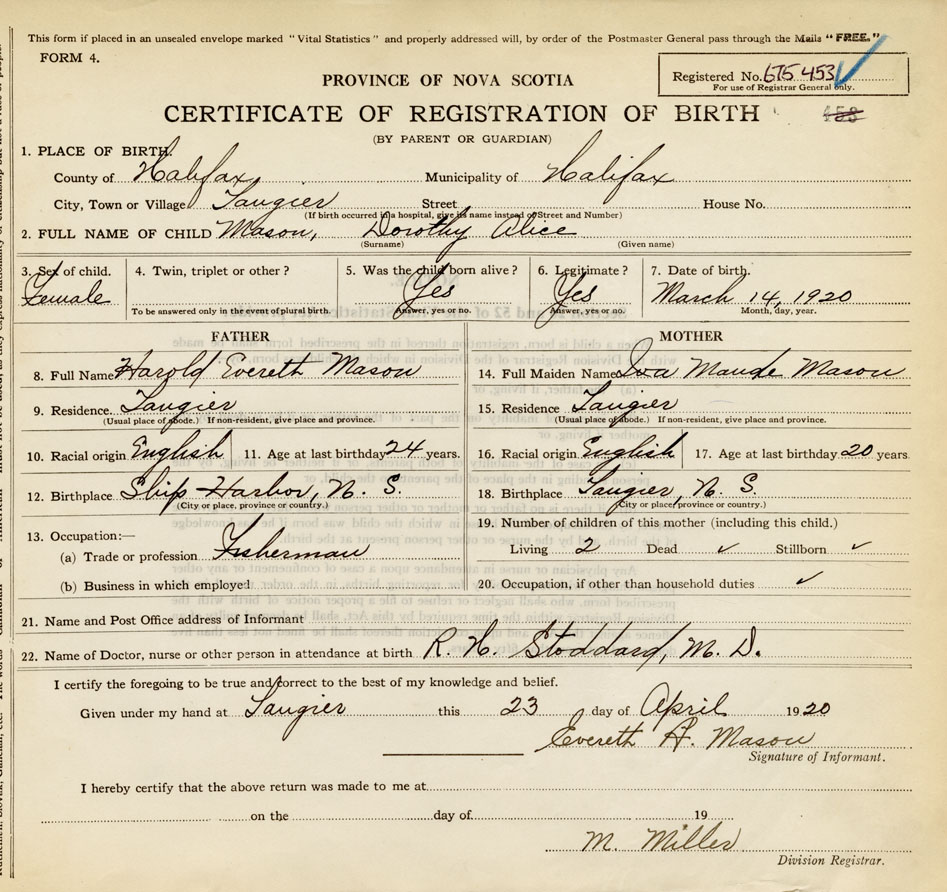 This form if placed in an unsealed envelope marked "Vital Statistics" and properly addressed will, by order of the Postmaster General pass through the Mails "FREE."
FORM 4.
Registered No. 675 453
For use of Registrar General only.
PROVINCE OF NOVA SCOTIA
CERTIFICATE OF REGISTRATION OF BIRTH
(BY PARENT OR GUARDIAN)
1. PLACE OF BIRTH.
County of Halifax Municipality of Halifax
City, Town or Village Tangier Street House No.
(If birth occurred in a hospital, give its name instead of Street and Number)
2. FULL NAME OF CHILD Mason, Dorothy Alice
(Surname) (Given name)
3. Sex of child. 4. Twin, triplet or other? 5. Was the child born alive? 6. Legitimate? 7. Date of birth.
Female Yes Yes March 14, 1920
To be answered only in the event of plural birth. Answer, yes or no. Answer, yes or no. Month, day, year.
FATHER
8. Full Name Harold Evereth Mason
9. Residence. Tangier
(Usual place of abode.) If non-resident, give place and province.
10. Racial origin English 11. Age at last birthday 24 years.
12. Birthplace Ship Harbor, N. S.
(City or place, province or country.)
13. Occupation:—
(a) Trade or profession Fisherman
(b) Business in which employed
MOTHER
14. Full Maiden Name Iva Maude Mason
15. Residence Tangier
(Usual place of abode.) If non-resident, give place and province.
16. Racial origin English 17. Age at last birthday. 20 years.
18. Birthplace Tangier, N. S.
(City or place, province or country.)
19. Number of children of this mother (including this child.)
Living 2 Dead ✓ Stillborn ✓
20. Occupation, if other than household duties ✓
21. Name and Post Office address of Informant
22. Name of Doctor, nurse or other person in attendance at birth R. H. Stoddard, M. D.
I certify the foregoing to be true and correct to the best of my knowledge and belief.
Given under my hand at Tangier this 23 day of April 1920
Evereth H. Mason
Signature of Informant.
I hereby certify that the above return was made to me at
on the day of 19
M. Miller
Division Registrar.